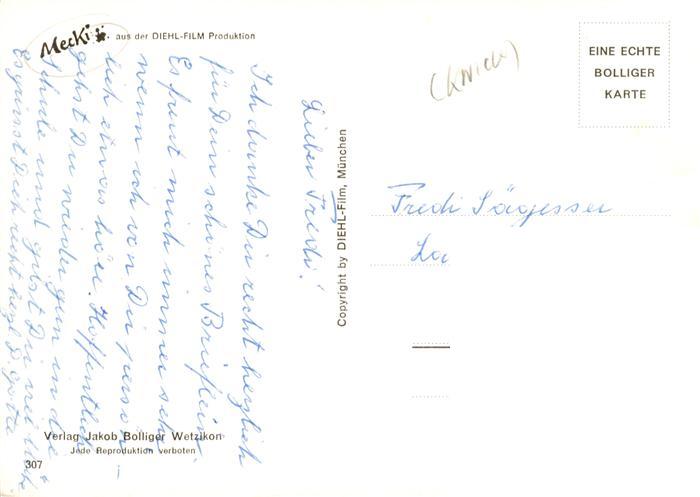 Mecki aus der DIEHL-FILM Produktion
Lieber Fredi!
Ich danke Dir recht herzlich
für Dein schönes Brieflein.
Es freut mich immer sehr
wenn ich von Dir persön
lich etwas höre. Hoffentlich
gehst Du wieder gern in die
Schule und gibst Dir viel Mühe.
Es grüsst Dich recht herzl
Verlag Jakob Bolliger Wetzikon
Jede Reproduktion verboten
307
Copyright by DIEHL-Film, München
(KNICK)
EINE ECHTE
BOLLIGER
KARTE
Fredi Sägesser